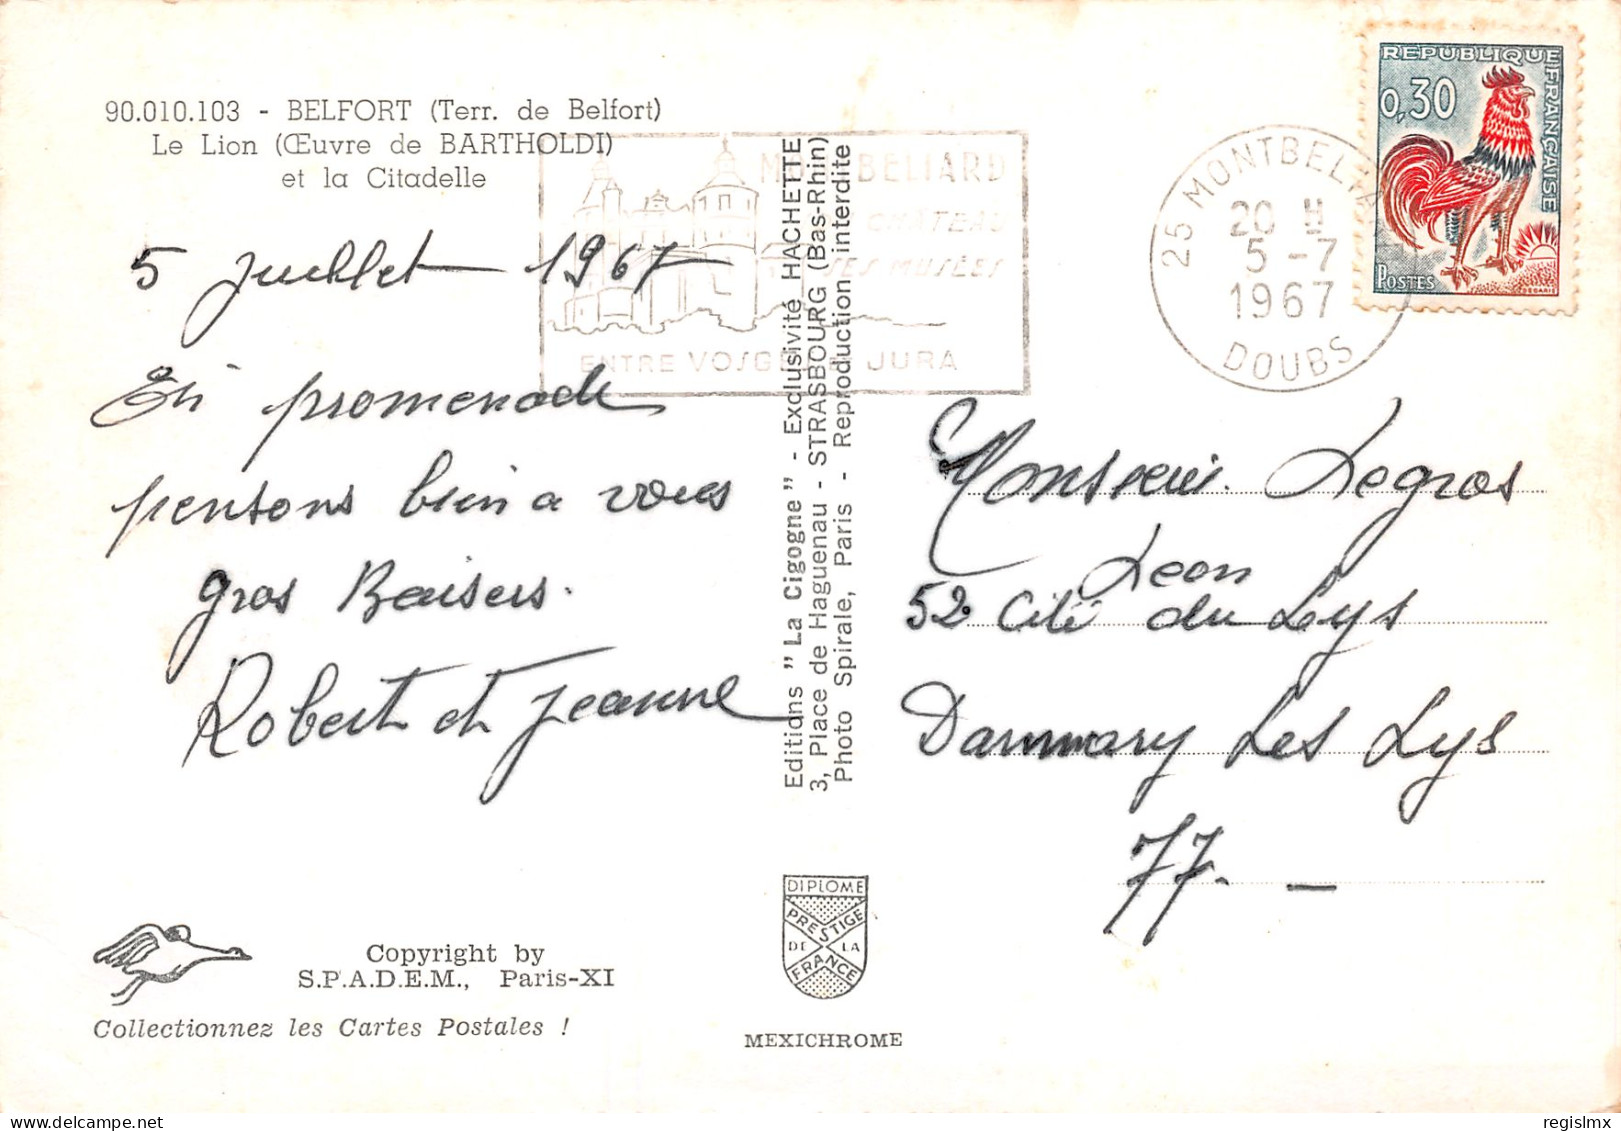 90.010.103 - BELFORT (Terr. de Belfort)
Le Lion (Œuvre de BARTHOLDI)
et la Citadelle
5 juillet 1967
En promenade
pensons bien a vous
gros Baisers.
Robert et Jeanne
MONTBELIARD
CHÂTEAU
SES MUSÉES
ENTRE VOSGES ET JURA
Editions "La Cigogne" - Exclusivité HACHETTE
3, Place de Haguenau - STRASBOURG (Bas-Rhin)
Photo Spirale, Paris - Reproduction interdite
25 MONTBELIARD
20 H
5 -7
1967
DOUBS
REPUBLIQUE FRANÇAISE
0,30
POSTES
DECARIS
Monsieur Legros
Leon
52 Cité du Lys
Dammary Les Lys
77. —
Copyright by
S.P.A.D.E.M., Paris-XI
Collectionnez les Cartes Postales !
DIPLOME
PRESTIGE
DE LA
FRANCE
MEXICHROME
regislmx
delcampe.net